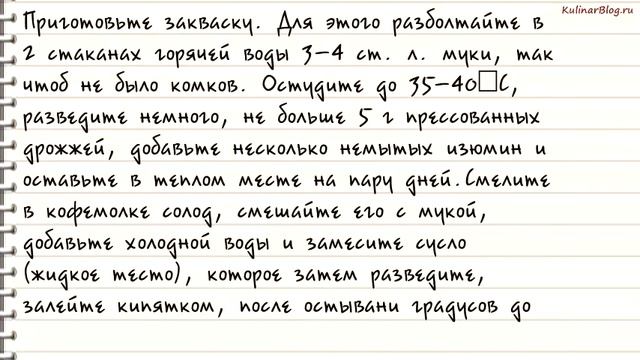 KulinarBlog.ru
Приготовьте закваску. Для этого разболтайте в
2 стаканах горячей воды 3–4 ст. л. муки, так
чтоб не было комков. Остудите до 35–40□С,
разведите немного, не больше 5 г прессованных
дрожжей, добавьте несколько немытых изюмин и
оставьте в теплом месте на пару дней.Смелите
в кофемолке солод, смешайте его с мукой,
добавьте холодной воды и замесите сусло
(жидкое тесто), которое затем разведите,
залейте кипятком, после остывани градусов до